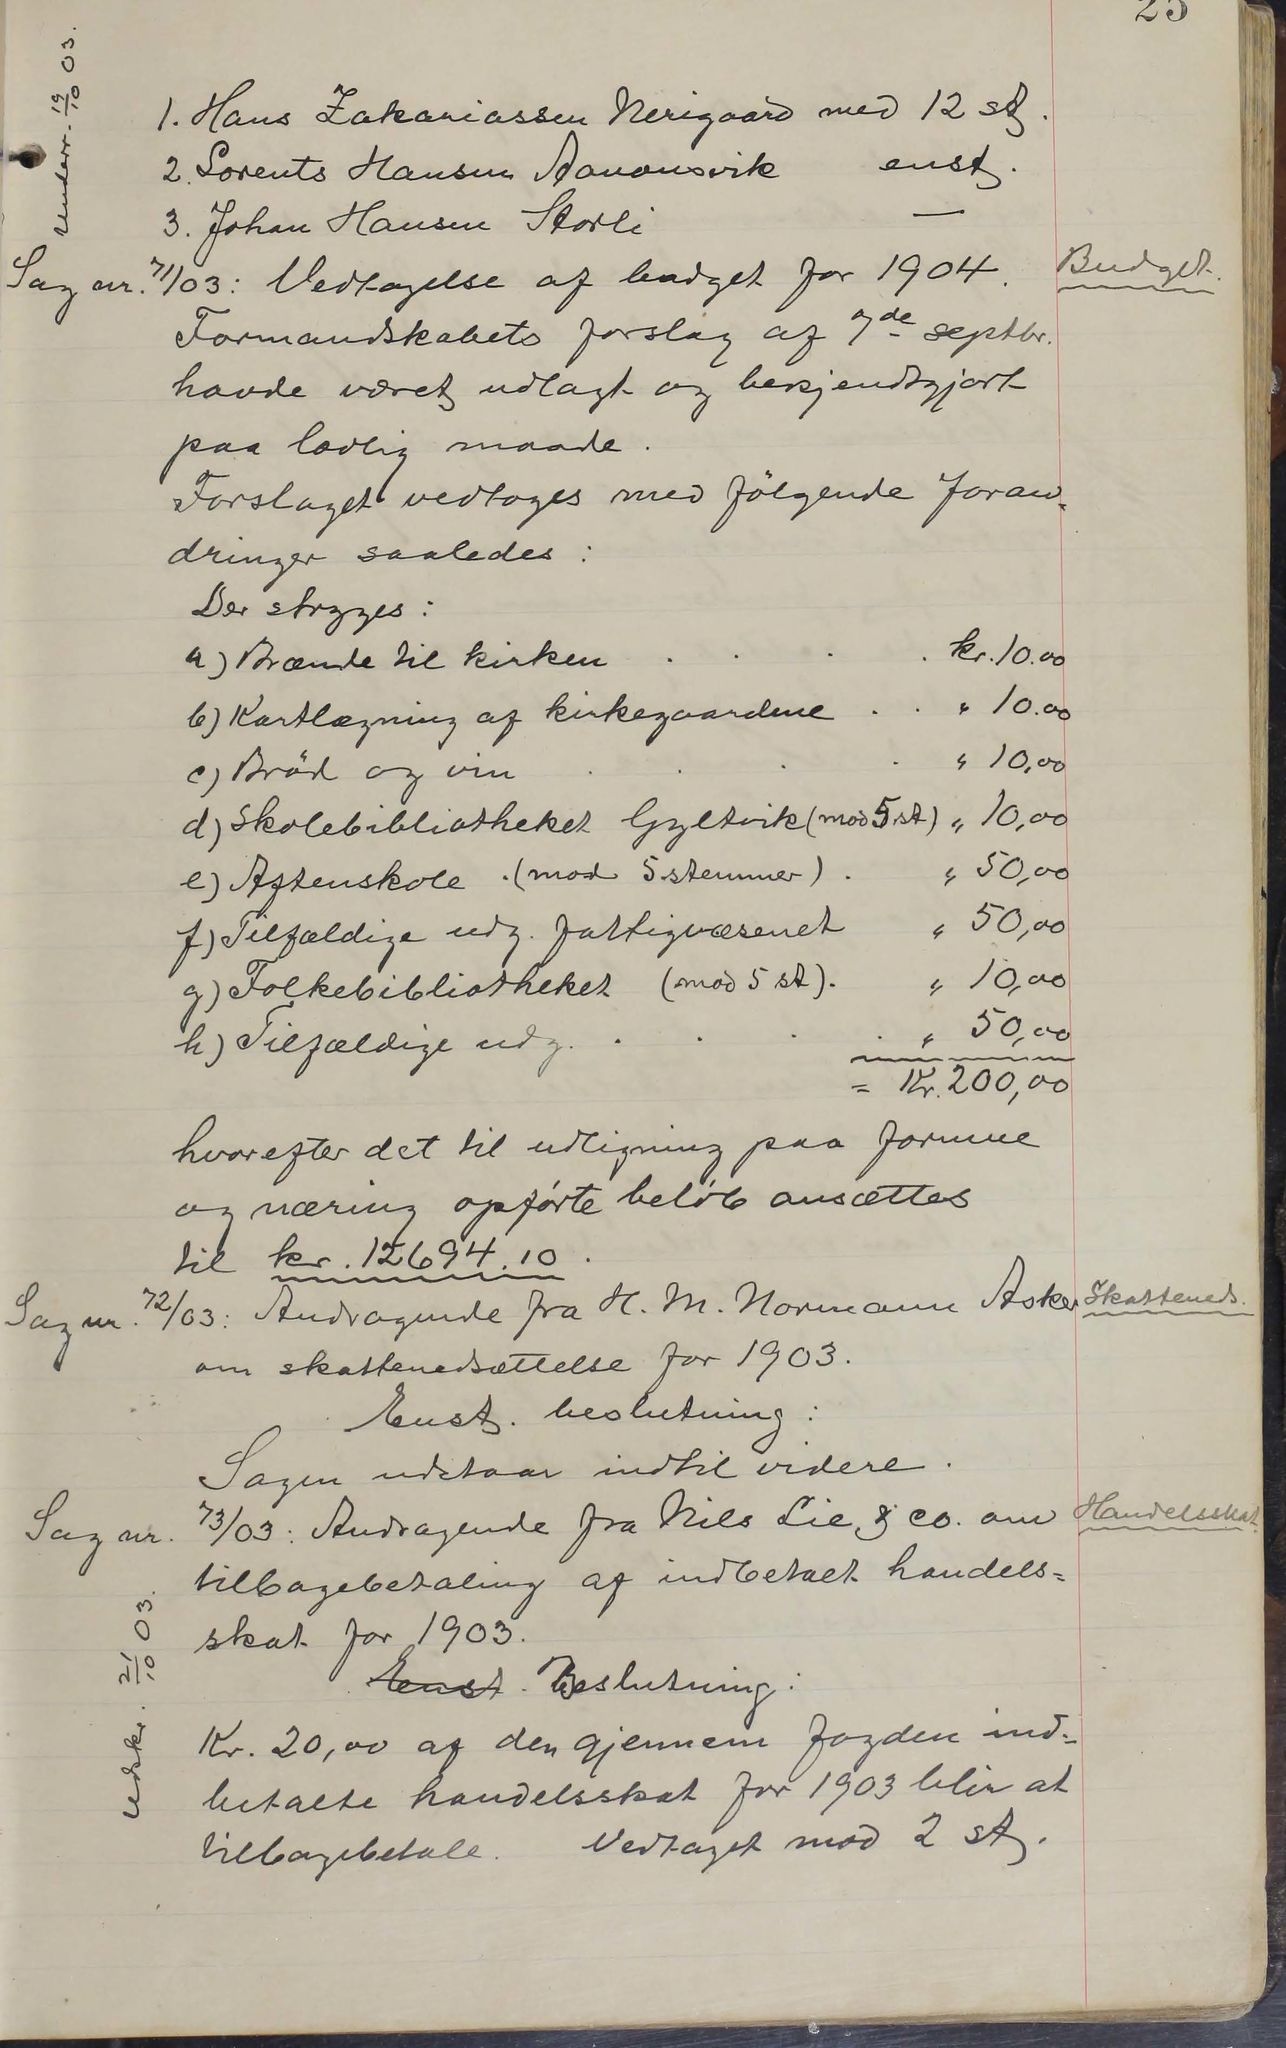 25
Underr. 19/10 03.
1. Hans Zakariassen Nerigaard med 12 st.
2. Lorents Hansen Aanonsvik enst.
3. Johan Hansen Storli —
Sag nr. 71/03: Vedtagelse af budget for 1904. Budget.
Formandskabets forslag af 7de septbr.
havde været udlagt og bekjendtgjort
paa lovlig maade.
Forslaget vedtoges med følgende foran-
dringer saaledes:
Der stryges:
a) Brænde til kirken . . . . kr. 10.00
b) Kartlægning af kirkegaardene . . " 10.00
c) Bröd og vin . . . . " 10,00
d) Skolebibliotheket Gyltvik (mod 5 st) " 10,00
e) Aftenskole . (mod 5 stemmer) . " 50,00
f) Tilfældige udg. fattigvæsenet " 50,00
g) Folkebibliotheket (mod 5 st). " 10,00
h) Tilfældige udg. . . . . " 50,00
= Kr. 200,00
hvorefter det til udligning paa formue
og næring opførte beløb ansættes
til kr. 12694.10.
Sag nr. 72/03: Andragende fra H. M. Normann Asker Skatteneds.
om skattenedsættelse for 1903.
Enst. beslutning:
Sagen udstaar indtil videre.
Sag nr. 73/03: Andragende fra Nils Lie & co. om Handelsskat
tilbagebetaling af indbetalt handels=
skat for 1903.
Enst. Beslutning:
Udskr. 21/10 03.
Kr. 20,00 af den gjennem fogden ind-
betalte handelsskat for 1903 blir at
tilbagebetale. Vedtaget mod 2 st.